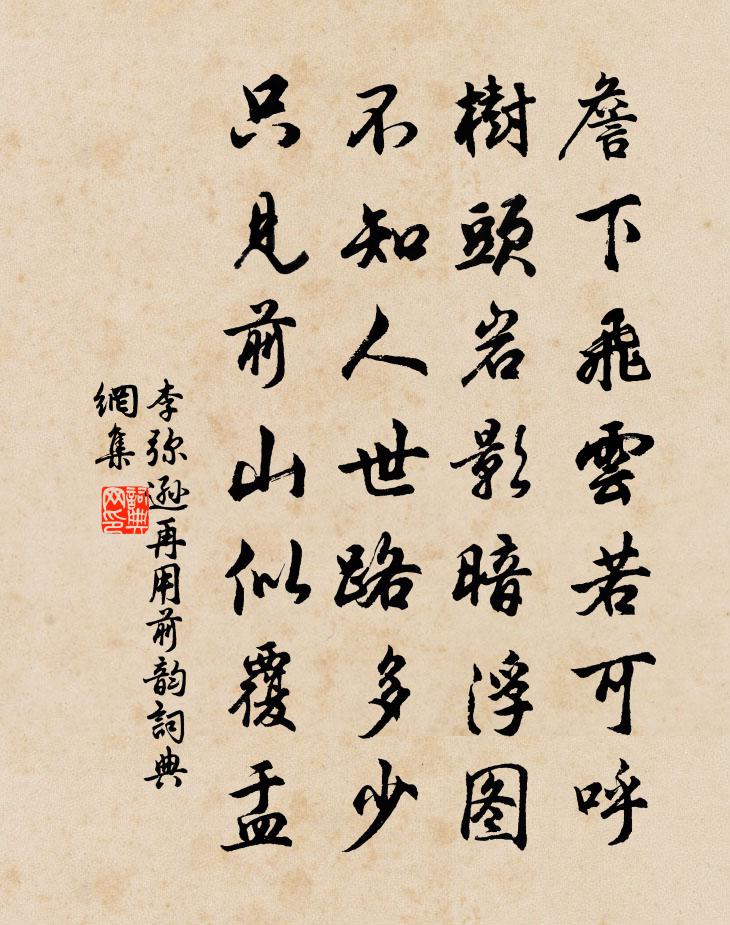 詹下飛雲若可呼
樹頭岩影暗浮图
不知人世路多少
只見前山似覆盂
李弥遜再用前韵詞典
網集
詞典
网印